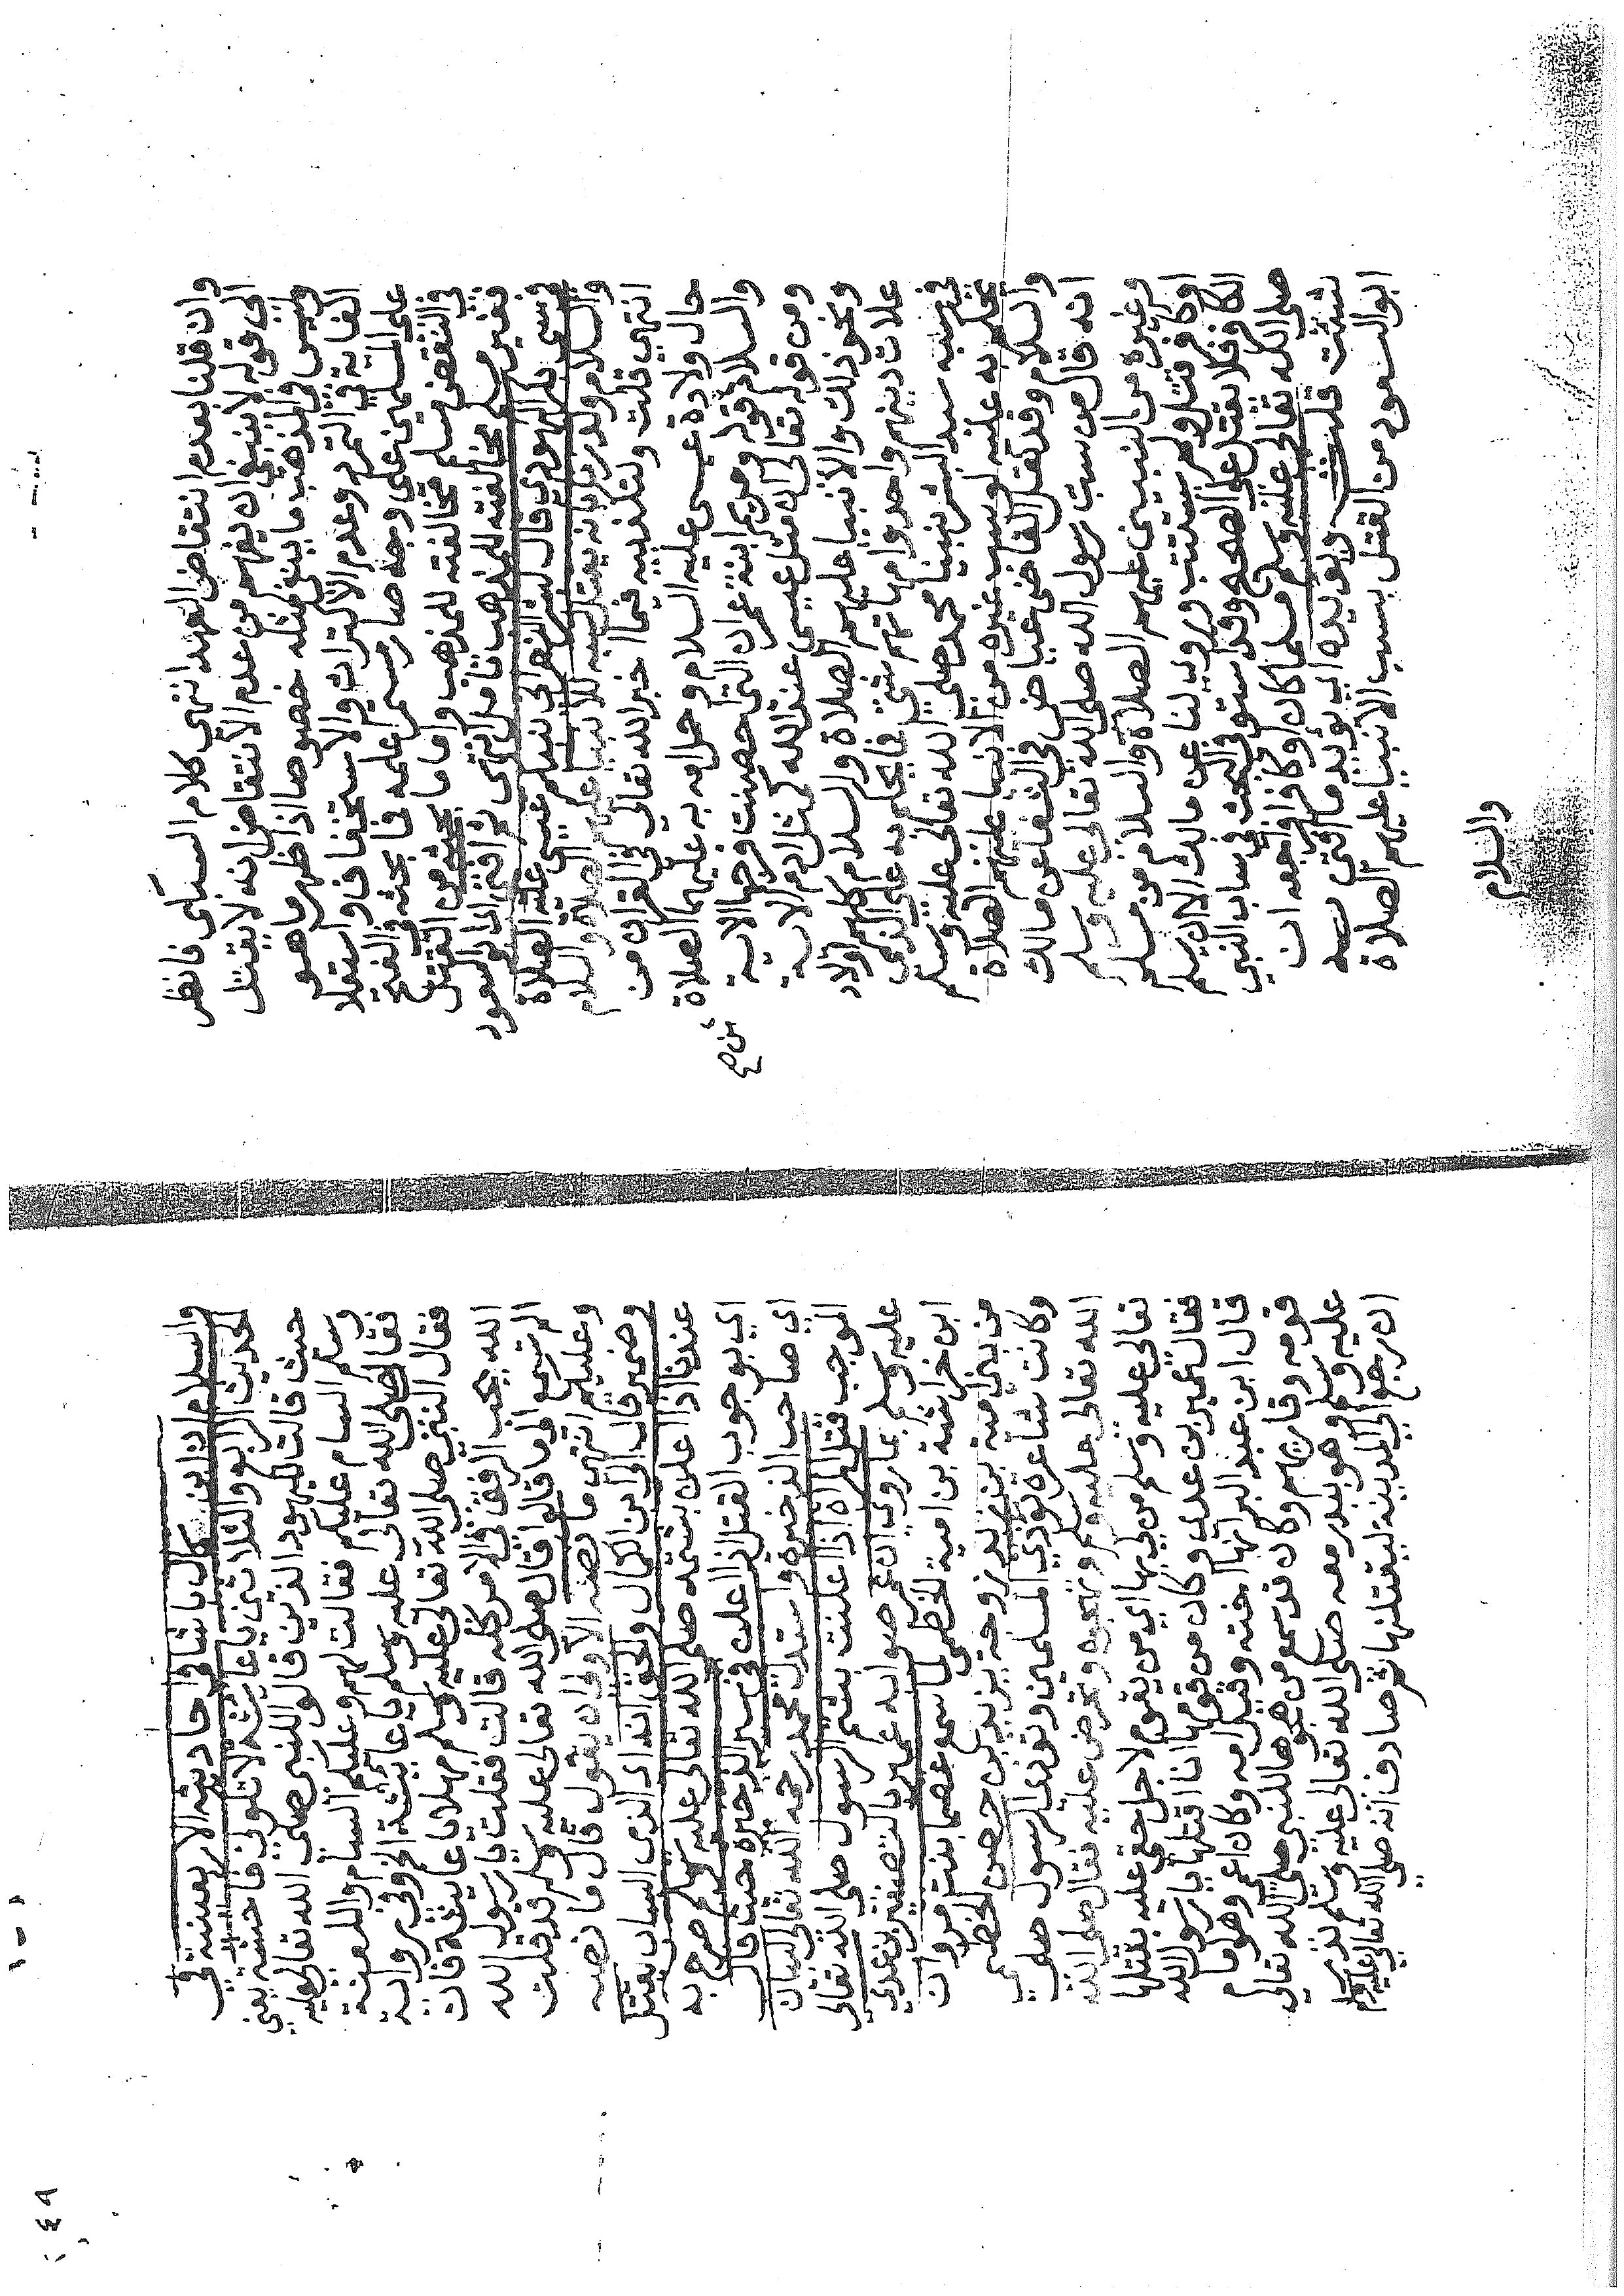 وان قلنا بعدم انتقاض العهد انتهى كلام السبكى فانظر
الى قوله لا ينبغي ان يفهم من عدم الانتقاض انه لا يقتل
وليس في المذهب ما ينفي قتله خصوصا اذا ظهر ما هو
الغاية في التمرد وعدم الاكتراث والاستخفاف واستعلا
على المسلمين على وجه صار مثله فما بحثه في الفتح
في النقض مسلم مخالفته للمذهب واما ما بحثه من القتل
فغير مسلم مخالفته للمذهب تامل انتهى ثم افتى ابو السعود
والسلام ولد زنا بانه يقتل لسبه للانبيا عليهم الصلاة والسلام
انتهى قلت ولتكذيبه فيما اخبر الله تعالى في القران من
حال ولادة عيسى عليه السلام وحال امه عليهما الصلاة
والسلام من قوله ومريم ابنة عمران التي احصنت فرجها الاية
ومن قوله تعالى ان مثل عيسى عند الله كمثل ادم الاية
ونحو ذلك والانبيا عليهم الصلاة والسلام كلهم اولاد
علات دينهم واحد وامهاتهم شتى فما يحكم به على الذي
في سبه سيد البشر نبينا محمد صلى الله تعالى عليه وسلم
يحكم به عليه لو سب غيره من الانبيا عليهم الصلاة
والسلام وقد نقل القاضى عياض في الشفا عن مالك
انه قال من سب رسول الله صلى الله تعالى عليه وسلم
وغيره من النبيين عليهم الصلاة والسلام من مسلم
او كافر قتل ولم يستتب وروي لنا عن مالك الا ان يسلم
الكافر فلا يقتل على الصحيح وقد استوفى البحث في ساب النبي
صلى الله تعالى عليه وسلم مسلما كان او كافرا فراجعه ان
شئت قلت ويؤيده اي يؤيد ما افتى به
ابو السعود من القتل بسب الانبيا عليهم الصلاة
والسلام
والسلام ان ابن كمال باشا في احاديثه الاربعينية في
الحديث الرابع والثلاثين يا عايشة لا تكوني فاحشة يعني
حيث قالت لليهود الذين قالوا للنبي صلى الله تعالى عليه
وسلم السام عليكم فقالت لهم وعليكم السام واللعنة
فقال صلى الله تعالى عليه وسلم يا عايشة الخ وفي رواية
فقال النبي صلى الله تعالى عليه وسلم مهلا يا عايشة فان
الله يحب الرفق في الامر كله قالت فقلت يا رسول الله
الم تسمع الى ما قالوا قال صلى الله تعالى عليه وسلم قد قلت
وعليكم انتهى ما نصه الاولى ان يقول قال ما نصه
وضمير قال الى ابن الكمال والحق انه اي الذي الساب يقتل
عندنا اذا اعلن بشتمه صلى الله تعالى عليه وسلم صرح به
اي بوجوب القتل اذا اعلن في سير الذخيرة حيث قال
اي صاحب الذخيرة واستدل محمد رحمه الله تعالى لبيان
الموجب قتل المراة اذا اعلنت بشتم الرسول صلى الله تعالى
عليه وسلم بما روي ان عمر صوابه عمير بالتصغير بن عدي
ابن خرشة بن امية الخطمي لما سمع عصما بنت مروان
من بني امية بن زيد زوجة يزيد بن حصن الخطمي
وكانت شاعرة تؤذي المسلمين وتؤذي الرسول صلى
الله تعالى عليه وسلم وتهجوه وتحرض عليه فقال صلى الله
تعالى عليه وسلم من لي بها اي من يقوم لاجل حقي عليه بقتلها
فقال عمير بن عدي وكان من قومها انا اقتلها يا رسول الله
قال ابن عبد البر انها اخته وقيل امه وكان اعمى وهو امام
قومه وقاريهم وكان قد سمع من هجوها للنبي صلى الله تعالى
عليه وسلم وهو ببدر معه صلى الله تعالى عليه وسلم نذر
ان رجعوا الى المدينة ليقتلنها ثم صادف انه صلى الله تعالى عليه وسلم